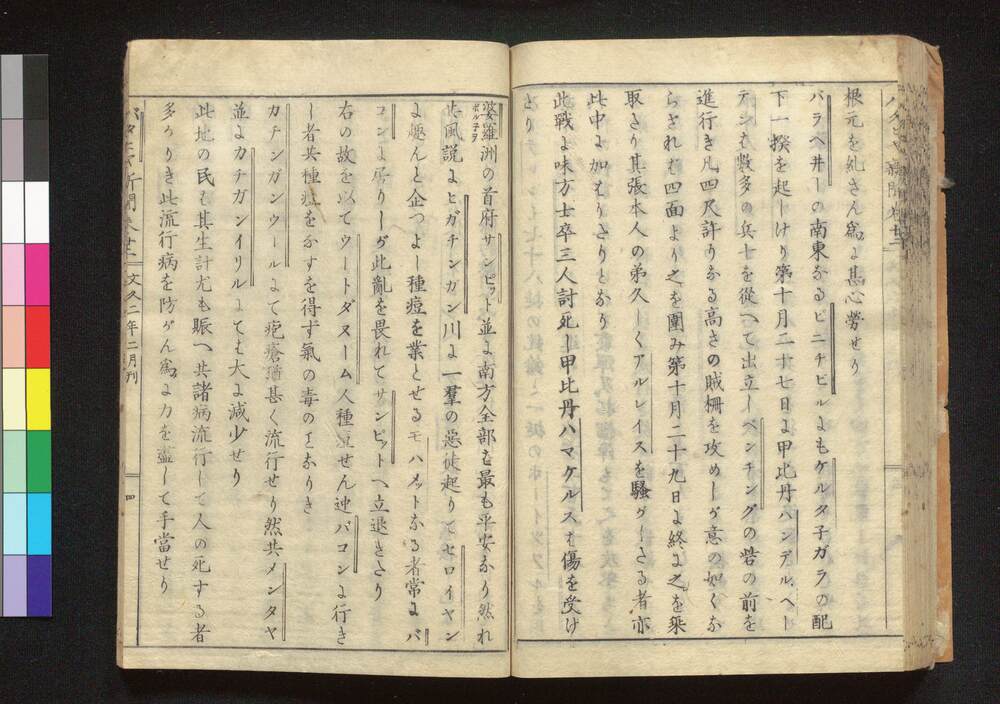 根元を糺さん為よ甚心労せり
バラヘ井ーの南東なるビニチビルよもケルタ子ガラの配
下一揆を起しけり第十月二十七日よ甲比丹ハンデル、ヘー
テン数多の兵士を従へて出立しベンチングの砦の前を
進行き凡四尺許りなる高さの賊柵を攻めしが意の如くな
らされど四面より之を圍み第十月二十九日よ終よ之を乗
取さり其張本人の弟久しくアルレイスを騒がしさる者亦
此中よ加もりさりとなり
此戦よ味方士卒三人討死し甲比丹ハマケルスも傷を受け
さり
婆羅洲の首府サンピット並よ南方全部も最も平安なり然れ
ボル子ヲ
共風説よヒガチンガン川よ一羣の悪徒起りてセロイヤン
よ趣んと企つよし種痘を業とせるモハメットなる者常よバ
コンよ居りしが此亂を畏れてサンピットへ立退きさり
右の故を以てウートダヌーム人種痘せん迚バコンよ行き
し者共種痘をなすを得ず氣の毒のことなりき
カチンガンウールよて疱瘡殖甚く流行せり然共メンタヤ
並よカチガンイリルよても大よ減少せり
此地の民も其生計尤も賑へ共諸病流行して人の死する者
多かりき此流行病を防がん為よ力を盡して手當せり
文久二年二月刊
四